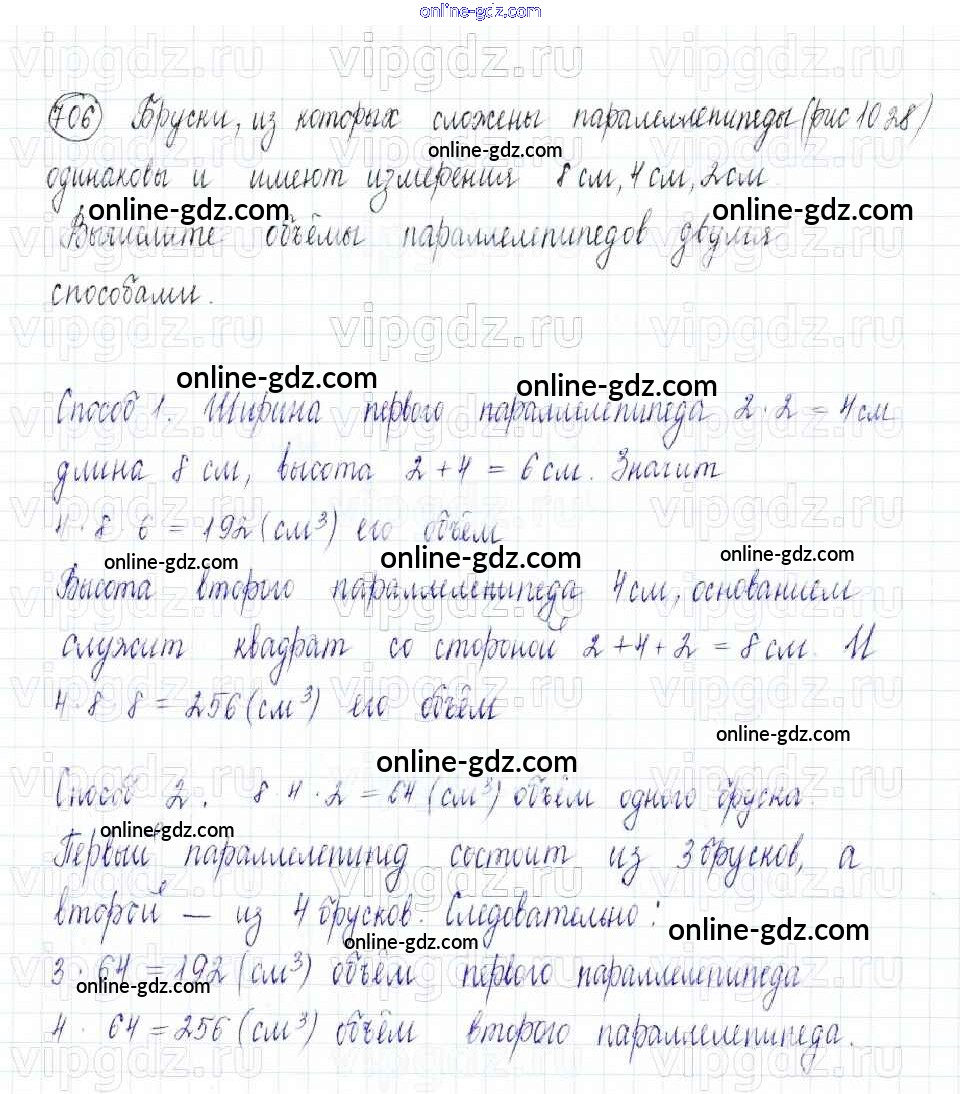 online-gdz.com
706 Бруски, из которых сложены параллелепипеды (рис 1028)
online-gdz.com
одинаковы и имеют измерения 8 см, 4 см, 2 см
online-gdz.com online-gdz.com
Вычислите объёмы параллелепипедов двумя
способами.
vipgdz.ru vipgdz.ru vipgdz.ru
online-gdz.com online-gdz.com
Способ 1. Ширина первого параллелепипеда 2 · 2 = 4 см
длина 8 см, высота 2 + 4 = 6 см. Значит
4 · 8 6 = 192 (см³) его объём
online-gdz.com online-gdz.com online-gdz.com
Высота второго параллелепипеда 4 см, основанием
служит квадрат со стороной 2 + 4 + 2 = 8 см. И
4 · 8 8 = 256 (см³) его объём
online-gdz.com
online-gdz.com
Способ 2. 8 4 · 2 = 64 (см³) объём одного бруска.
online-gdz.com
Первый параллелепипед состоит из 3 брусков, а
второй — из 4 брусков. Следовательно:
online-gdz.com online-gdz.com
3 · 64 = 192 (см³) объём первого параллелепипеда
online-gdz.com
4 · 64 = 256 (см³) объём второго параллелепипеда.